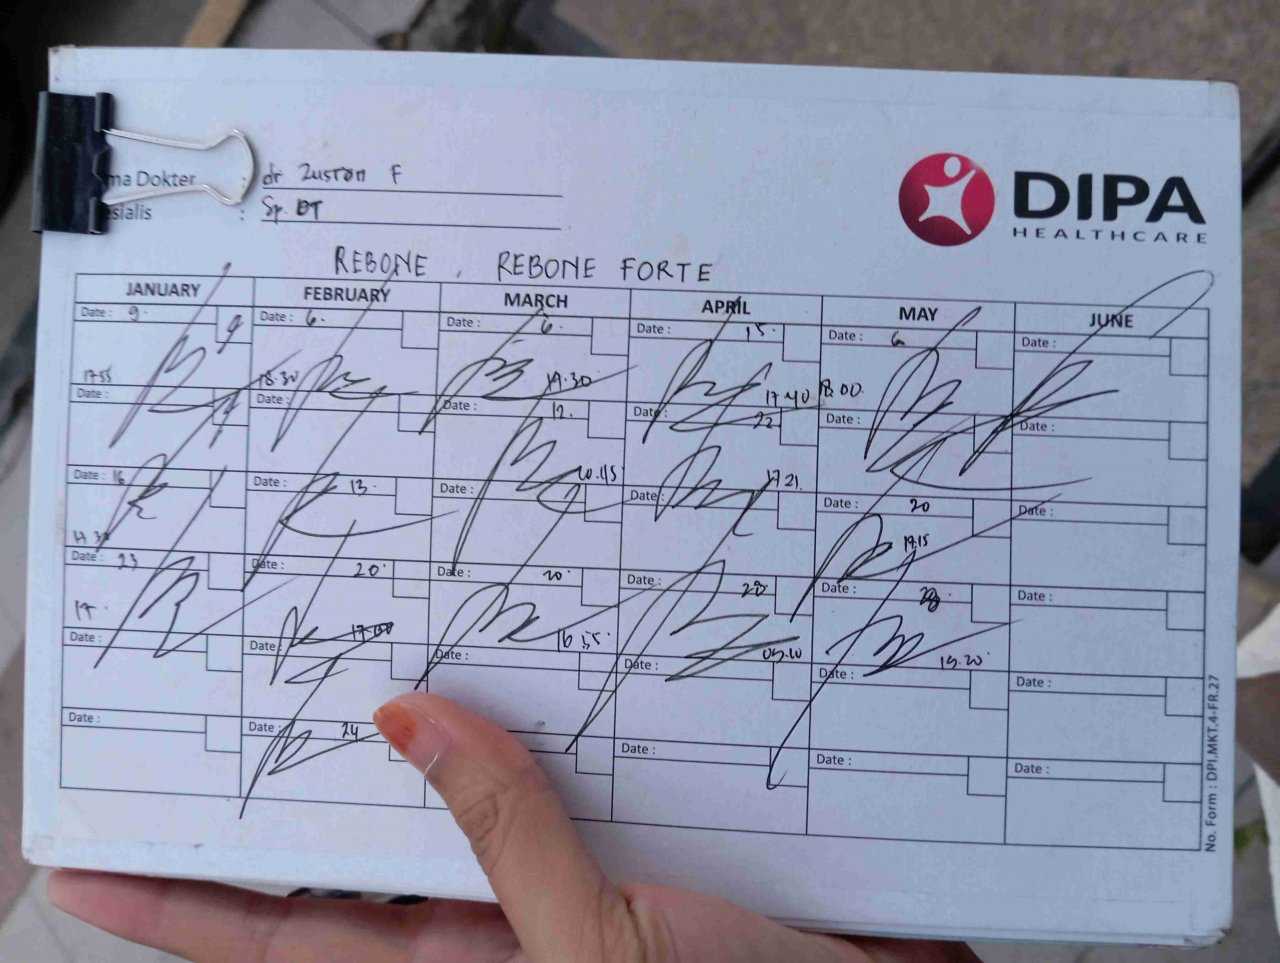 ma Dokter : dr Zuston F
esialis : Sp. OT
DIPA
HEALTHCARE
REBONE , REBONE FORTE
JANUARY FEBRUARY MARCH APRIL MAY JUNE
Date : 9. 9 Date : 6. Date : 6. Date : 15. Date : 6 Date :
17 55 18.30 19.30 17 40 18.00
Date : 9 Date : Date : 12. Date : 22 Date : Date :
17 21
Date : 16 Date : 13. Date : Date : Date : 20 Date :
19.15
Date : 23 Date : 20. Date : 20. Date : 28. Date : 28. Date :
17. 17.00 16 55 05.10 19.20
Date : Date : Date : Date : Date : Date :
Date : Date : 24 Date : Date : Date :
No. Form : DPI.MKT.4-FR.27